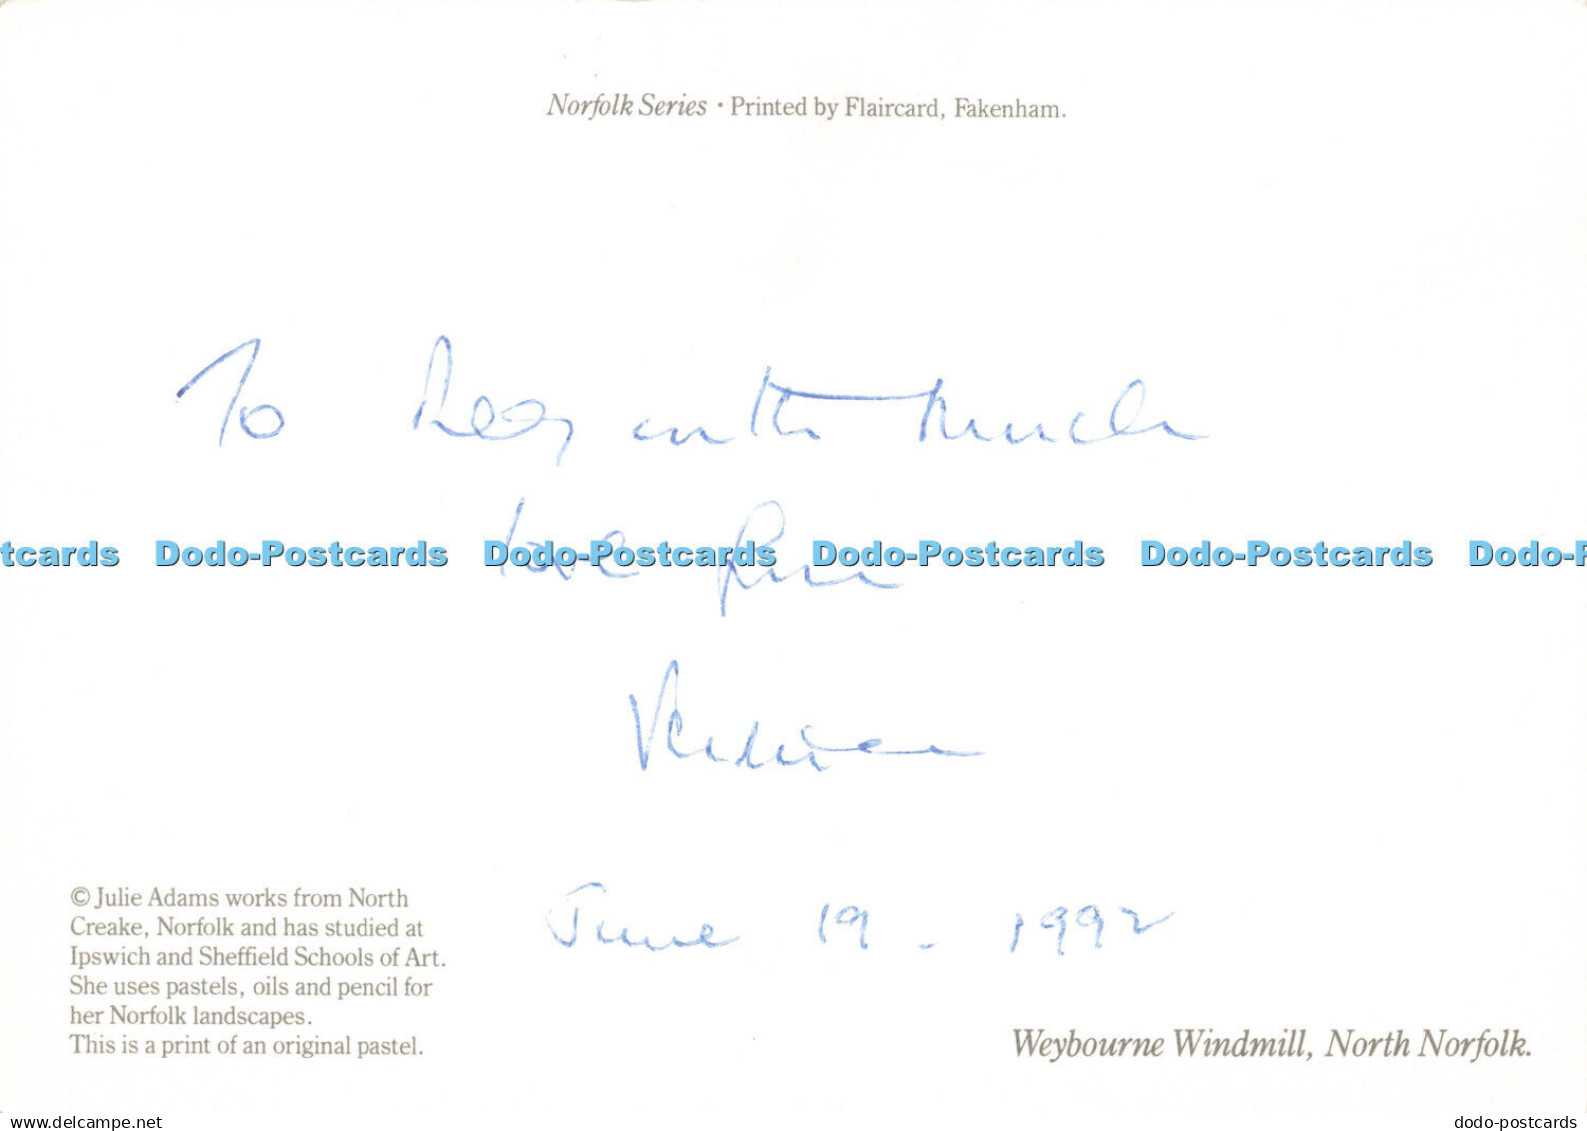 Norfolk Series · Printed by Flaircard, Fakenham.
To Reg with much
love from
June 19 - 1992
tcards Dodo-Postcards Dodo-Postcards Dodo-Postcards Dodo-Postcards Dodo-P
© Julie Adams works from North
Creake, Norfolk and has studied at
Ipswich and Sheffield Schools of Art.
She uses pastels, oils and pencil for
her Norfolk landscapes.
This is a print of an original pastel.
Weybourne Windmill, North Norfolk.
www.delcampe.net
dodo-postcards